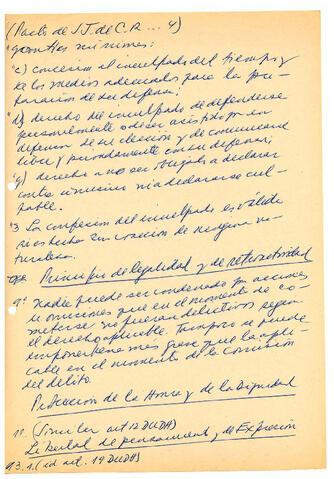 (Pacto de S.J. de C.R. ... 4)
"garantías mínimas:
"c) concesión al inculpado del tiempo y
de los medios adecuados para la pre-
paración de su defensa;
"d) derecho del inculpado de defenderse
personalmente o de ser asistido por un
defensor de su elección y de comunicarse
libre y privadamente con su defensor;
"g) derecho a no ser obligado a declarar
contra sí mismo ni a declararse cul-
pable.
"3 La confesión del inculpado es válida
si es hecha sin coacción de ninguna na-
turaleza.
Principio de legalidad y de retroactividad
9: Nadie puede ser condenado por acciones
u omisiones que en el momento de co-
meterse no fueran delictivos según
el derecho aplicable. Tampoco se puede
imponer pena más grave que la apli-
cable en el momento de la comisión
del delito.
Protección de la Honra y de la Dignidad
11. (Similar art 12 DUDH)
Libertad de pensamiento y de Expresión
13.1. (id art. 19 DUDH)